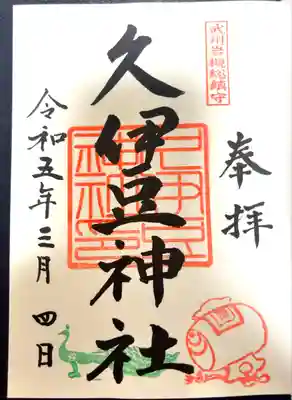 武州岩槻総鎮守
奉拝
久伊豆神社
久伊豆神社印
令和五年三月四日